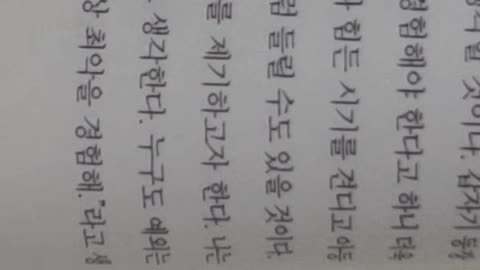 것이다. 갑자기
경험해야 한다고 하니
힘든 시기를 견디고
들릴 수도 있을 것이다.
를 제기하고자 한다. 나는
생각한다. 누구도 예외는
상 최악을 경험해."라고 생